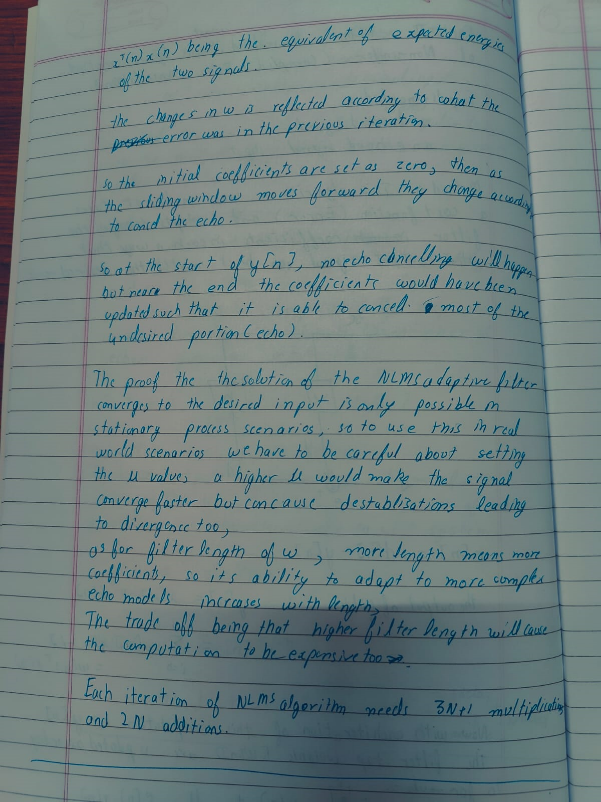 x^T(n) x(n) being the equivalent of expected energies
of the two signals.
the changes in w is reflected according to what the
error was in the previous iteration.
so the initial coefficients are set as zero, then as
the sliding window moves forward they change according
to cancel the echo.
so at the start of y[n], no echo cancelling will happen
but near the end the coefficients would have been
updated such that it is able to cancel most of the
undesired portion (echo).
The proof the the solution of the NLMS adaptive filter
converges to the desired input is only possible in
stationary process scenarios, so to use this in real
world scenarios we have to be careful about setting
the μ value, a higher μ would make the signal
converge faster but can cause destablisations leading
to divergence too,
as for filter length of w, more length means more
coefficients, so its ability to adapt to more complex
echo models increases with length,
The trade off being that higher filter length will cause
the computation to be expensive too.
Each iteration of NLMS algorithm needs 3N+1 multiplications
and 2N additions.